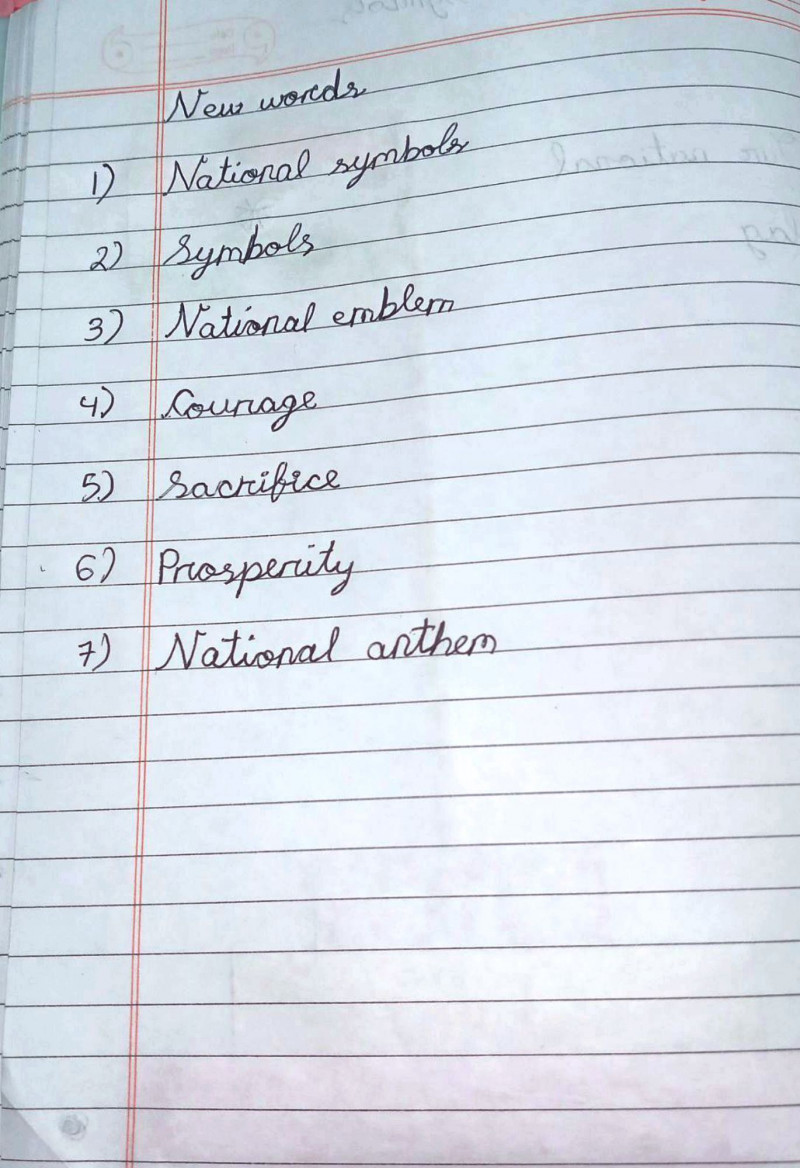 New words
1) National symbols
2) Symbols
3) National emblem
4) Courage
5) Sacrifice
6) Prosperity
7) National anthem